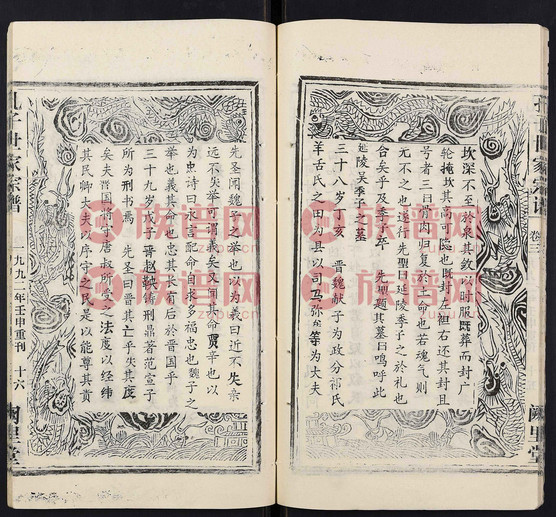 孔子世家宗谱
卷三
阙里堂
坎深不至於泉其敛以时服既葬而封广
轮掩坎其高可隐也既封左袒右还其封且
号者三曰骨肉归复於土命也若魂气则
无不之也遂行先圣曰延陵季子之於礼也
合矣乎及季子卒 先圣题其墓曰呜呼此
延陵吴季子之墓
三十八岁丁亥 晋魏献子为政分祁氏
羊舌氏之田为县以司马弥牟等为大夫
先圣闻魏子之举也以为义曰近不失亲
远不失举可谓义矣又闻其命贾辛也以
为忠诗曰永言配命自求多福忠也魏子之
举也义其命也忠其长有后於晋国乎
三十九岁戊子 晋赵鞅铸刑鼎著范宣子
所为刑书焉 先圣曰晋其亡乎失其度
矣夫晋国将守唐叔所受之法度以经纬
其民卿大夫以序守之民是以能尊其贵
孔子世家宗谱
一九九二年壬申重刊
十六
阙里堂
族谱网
族谱网